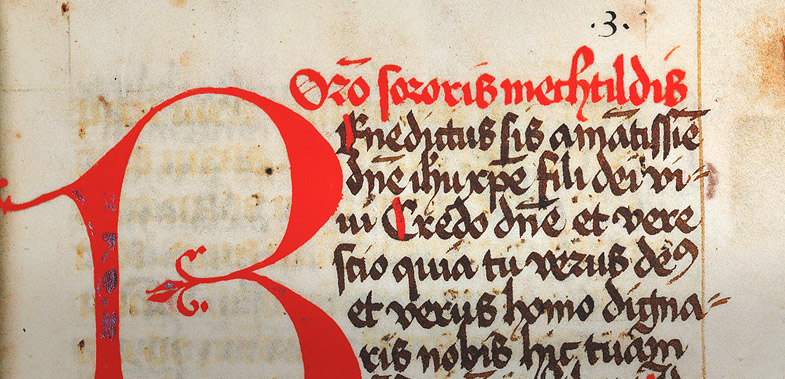 ·3·
Orō sororis mechtildis
BEnedictus sis amātissīe
dn̄e ihu xp̄e fili dei vi-
ui Credo dn̄e et vere
scio quia tu verus deꝰ
et verus homo digna-
ris nobis hic tuam